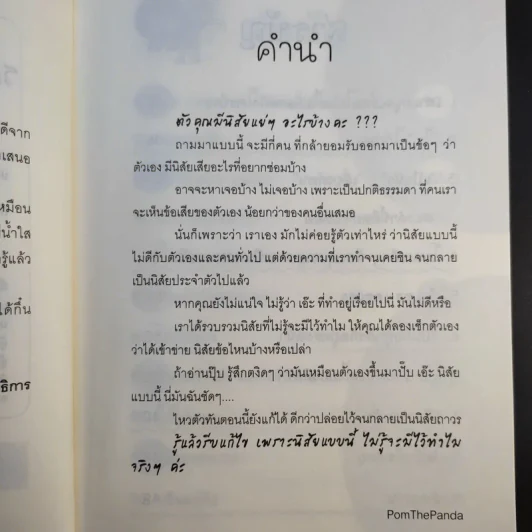 คำนำ
ตัวคุณมีนิสัยแย่ๆ อะไรบ้างคะ ???
ถามมาแบบนี้ จะมีกี่คน ที่กล้ายอมรับออกมาเป็นข้อๆ ว่า
ตัวเอง มีนิสัยเสียอะไรที่อยากซ่อมบ้าง
อาจจะหาเจอบ้าง ไม่เจอบ้าง เพราะเป็นปกติธรรมดา ที่คนเรา
จะเห็นข้อเสียของตัวเอง น้อยกว่าของคนอื่นเสมอ
นั่นก็เพราะว่า เราเอง มักไม่ค่อยรู้ตัวเท่าไหร่ ว่านิสัยแบบนี้
ไม่ดีกับตัวเองและคนทั่วไป แต่ด้วยความที่เราทำจนเคยชิน จนกลาย
เป็นนิสัยประจำตัวไปแล้ว
หากคุณยังไม่แน่ใจ ไม่รู้ว่า เอ๊ะ ที่ทำอยู่เรื่อยไปนี่ มันไม่ดีหรือ
เราได้รวบรวมนิสัยที่ไม่รู้จะมีไว้ทำไม ให้คุณได้ลองเช็กตัวเอง
ว่าได้เข้าข่าย นิสัยข้อไหนบ้างหรือเปล่า
ถ้าอ่านปุ๊บ รู้สึกตงิดๆ ว่ามันเหมือนตัวเองขึ้นมาปั๊บ เอ๊ะ นิสัย
แบบนี้ นี่มันฉันชัดๆ....
ไหวตัวทันตอนนี้ยังแก้ได้ ดีกว่าปล่อยไว้จนกลายเป็นนิสัยถาวร
รู้แล้วรีบแก้ไข เพราะนิสัยแบบนี้ ไม่รู้จะมีไว้ทำไม
จริงๆ ค่ะ
PomThePanda
ดีจาก
เสนอ
หมือน
น้ำใส
รู้แล้ว
ได้กิ๋น
ธิการ